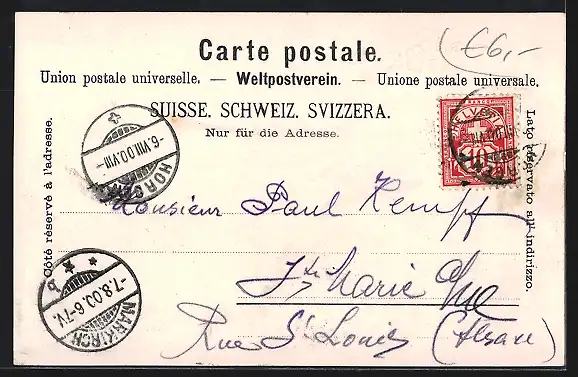 €6,-
Carte postale.
Union postale universelle. — Weltpostverein. — Unione postale universale.
SUISSE. SCHWEIZ. SVIZZERA.
Nur für die Adresse.
Côté réservé à l'adresse.
Lato riservato all'indirizzo.
HELVETIA
10
HORGEN
-6.VIII.00.VIII-
Monsieur Paul Kempf
Ste Marie a/Me
Rue St Louis (Alsace)
MARKIRCH
-7.8.00.6-7V.